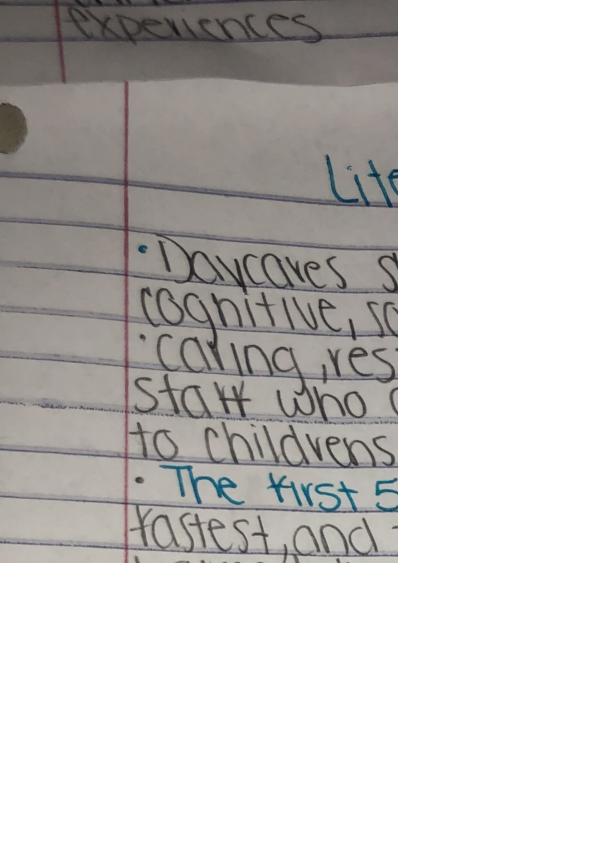 experiences
Lite
• Daycares s
cognitive, so
• caring, res
staff who
to childrens
• The first 5
fastest, and